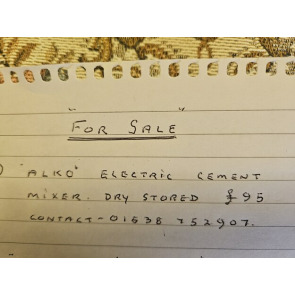 "FOR SALE"
"ALKO" ELECTRIC CEMENT
MIXER. DRY STORED £95
CONTACT - 01638 752907.